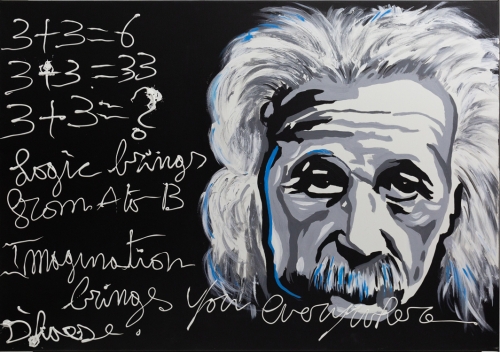 3+3=6
3+3=33
3+3=?
Logic brings
from A to B
Imagination
brings you everywhere